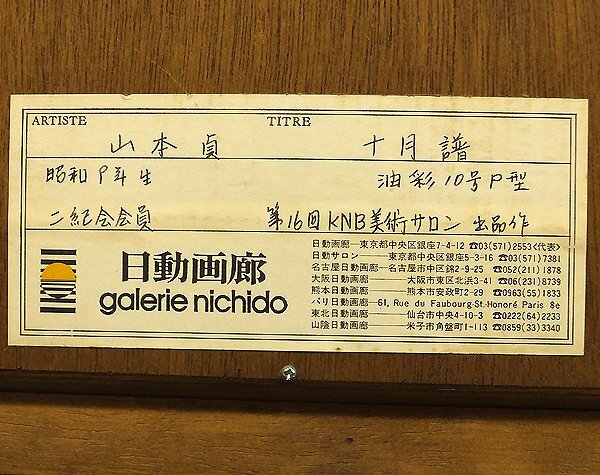 ARTISTE TITRE
山本貞 十月譜
昭和9年生 油彩10号P型
二紀会会員 第16回KNB美術サロン 出品作
日動画廊
galerie nichido
日動画廊—東京都中央区銀座7-4-12 ☎03(571)2553〈代表〉
日動サロン—東京都中央区銀座5-3-16 ☎03(571)7381
名古屋日動画廊—名古屋市中区錦2-9-25 ☎052(211)1878
大阪日動画廊—大阪市東区北浜3-41 ☎06(231)8739
熊本日動画廊—熊本市安政町2-29 ☎0963(55)1833
パリ日動画廊—61, Rue du Faubourg-St-Honoré Paris 8e
東北日動画廊—仙台市中央4-10-3 ☎0222(64)2233
山陰日動画廊—米子市角盤町1-113 ☎0859(33)3340